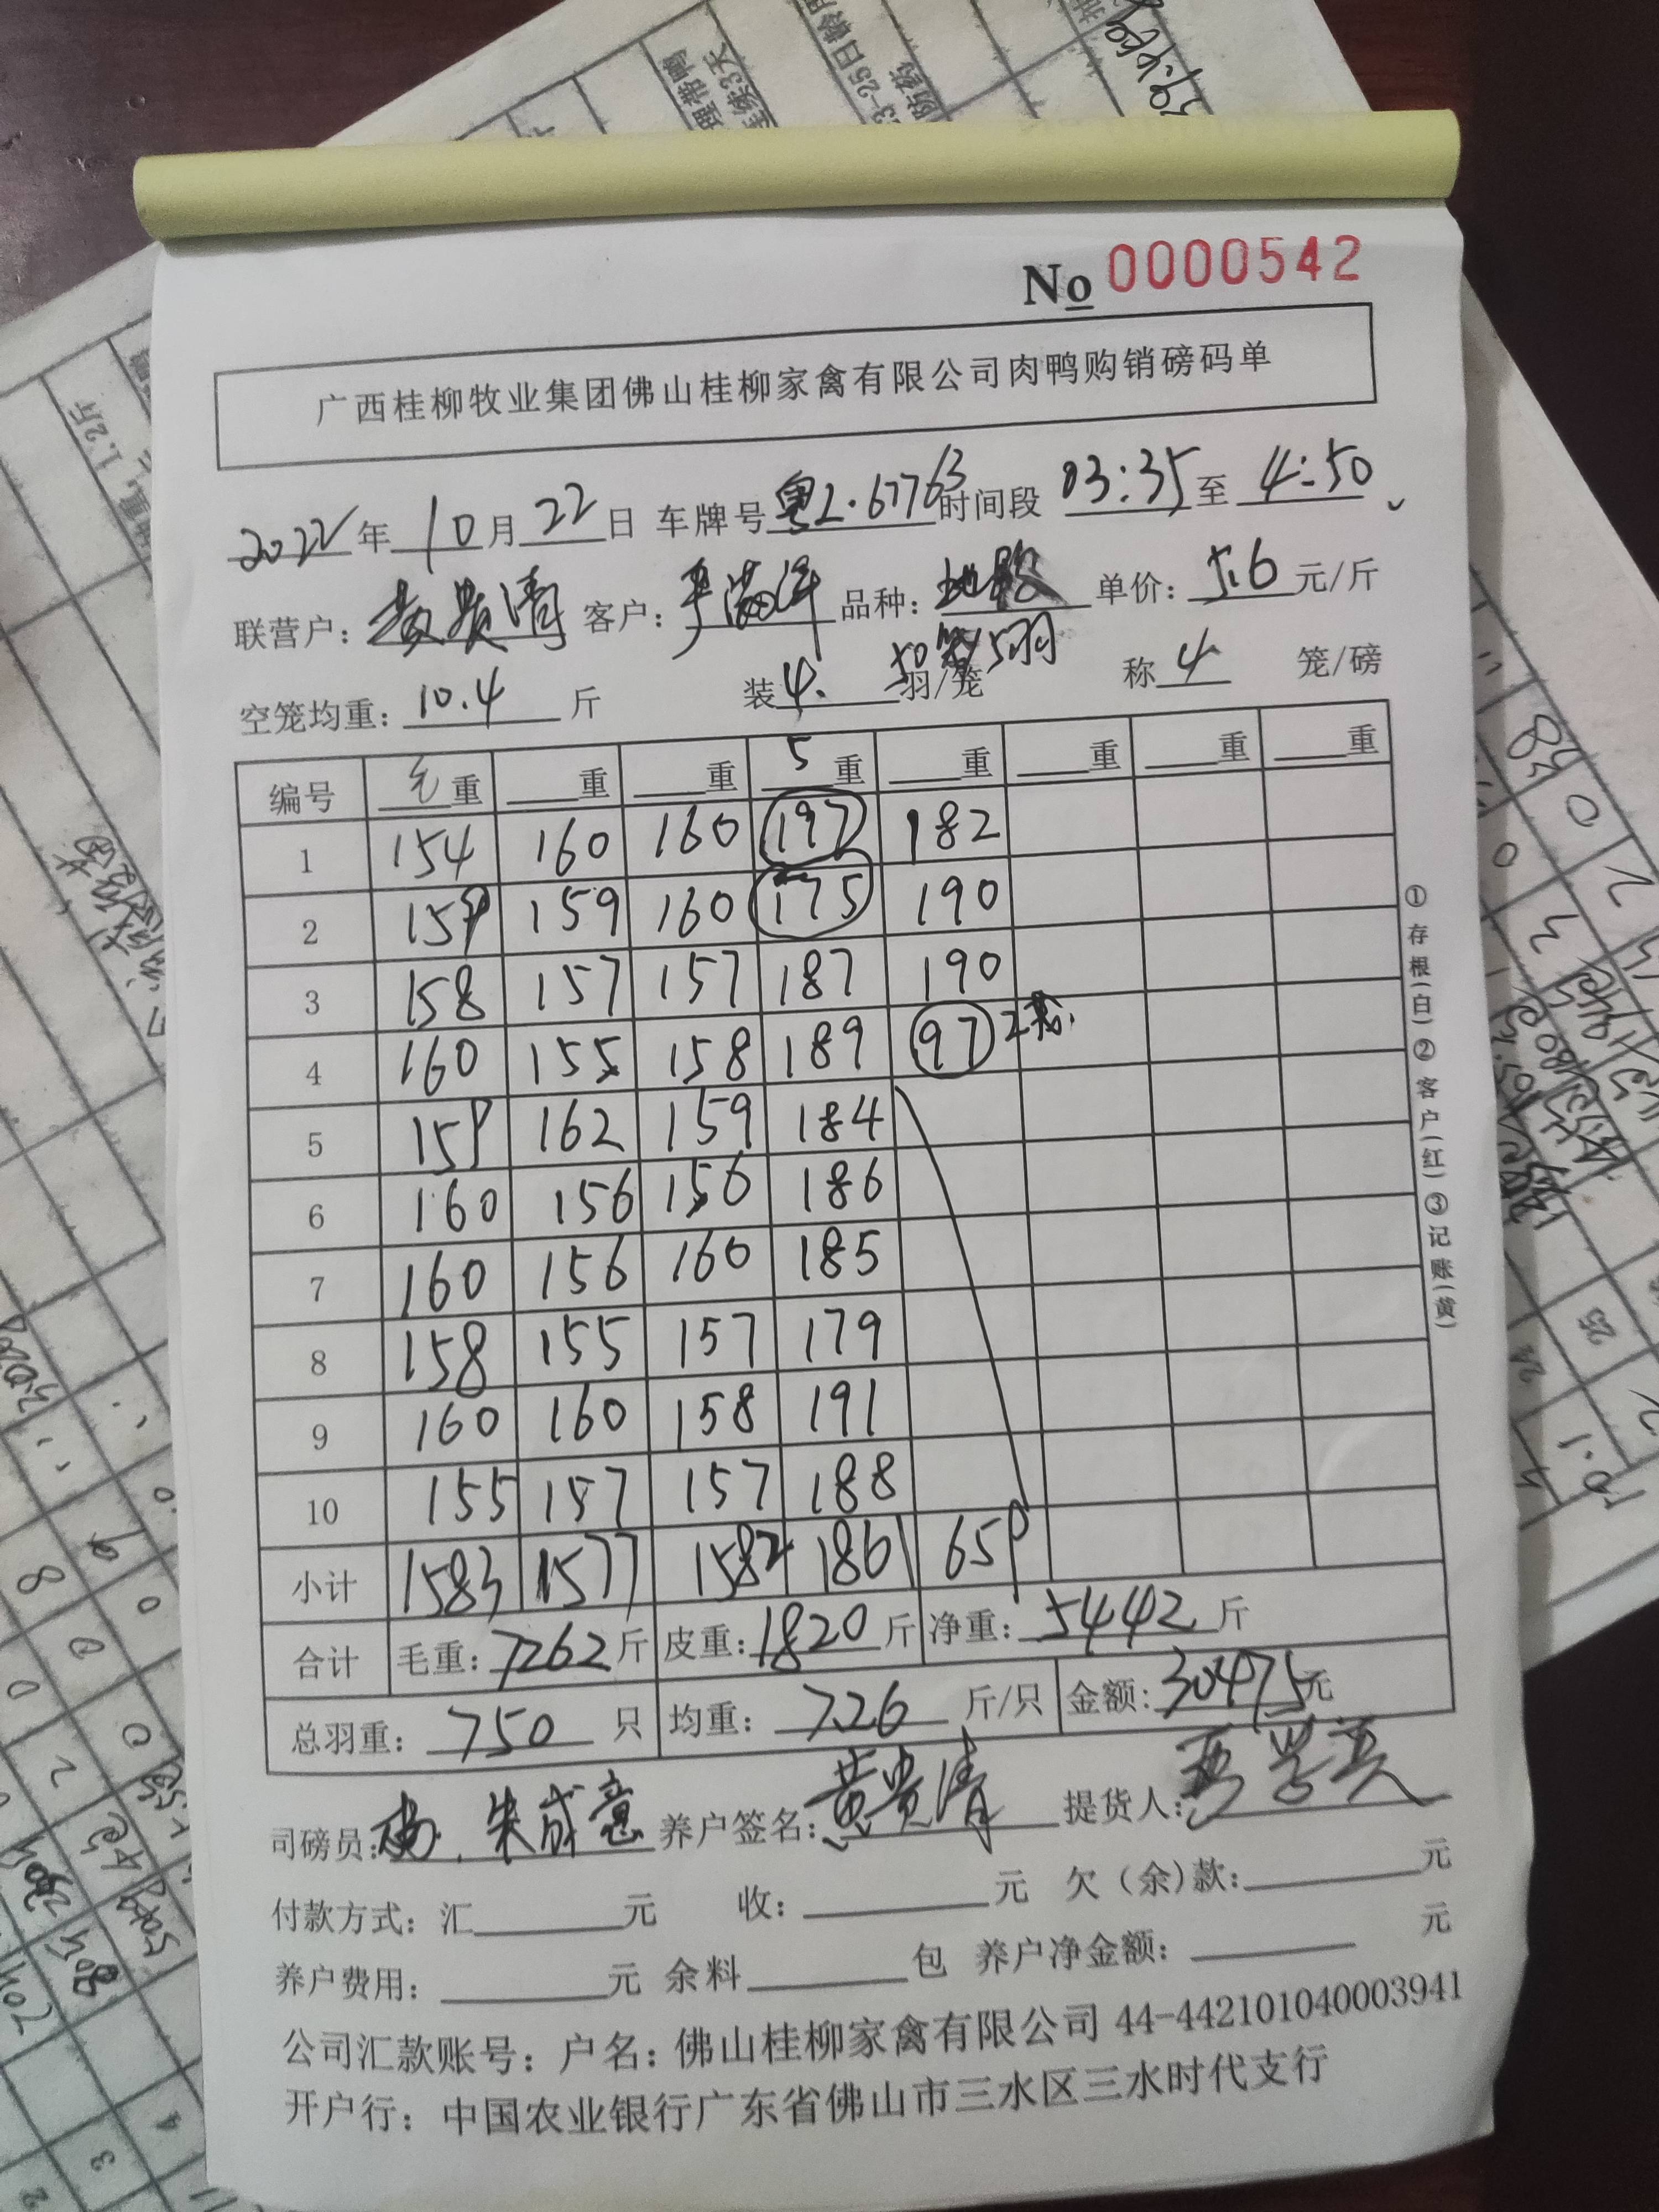 No 0000542
广西桂柳牧业集团佛山桂柳家禽有限公司肉鸭购销磅码单
2022年10月22日 车牌号粤L·67763时间段 03:35至4:50
联营户：黄贵清 客户： 品种： 单价：5.6元/斤
50笼/5羽
空笼均重：10.4斤 装4.羽/笼 称4笼/磅
编号 毛重 重 重 5重 重 重 重 重
1 154 160 160 197 182
2 159 159 160 175 190
3 158 157 157 187 190
4 160 155 158 189 97 2
5 159 162 159 184
6 160 156 156 186
7 160 156 160 185
8 158 155 157 179
9 160 160 158 191
10 155 157 157 188
小计 1583 1577 1582 1861 659
合计 毛重：7262斤 皮重：1820斤 净重：5442斤
总羽重：750只 均重：7.26斤/只 金额：30475元
司磅员： 朱成意 养户签名：黄贵清 提货人：
付款方式：汇 元 收： 元 欠（余）款： 元
养户费用： 元 余料 包 养户净金额： 元
公司汇款账号：户名：佛山桂柳家禽有限公司 44-442101040003941
开户行：中国农业银行广东省佛山市三水区三水时代支行
①存根(白)②客户(红)③记账(黄)